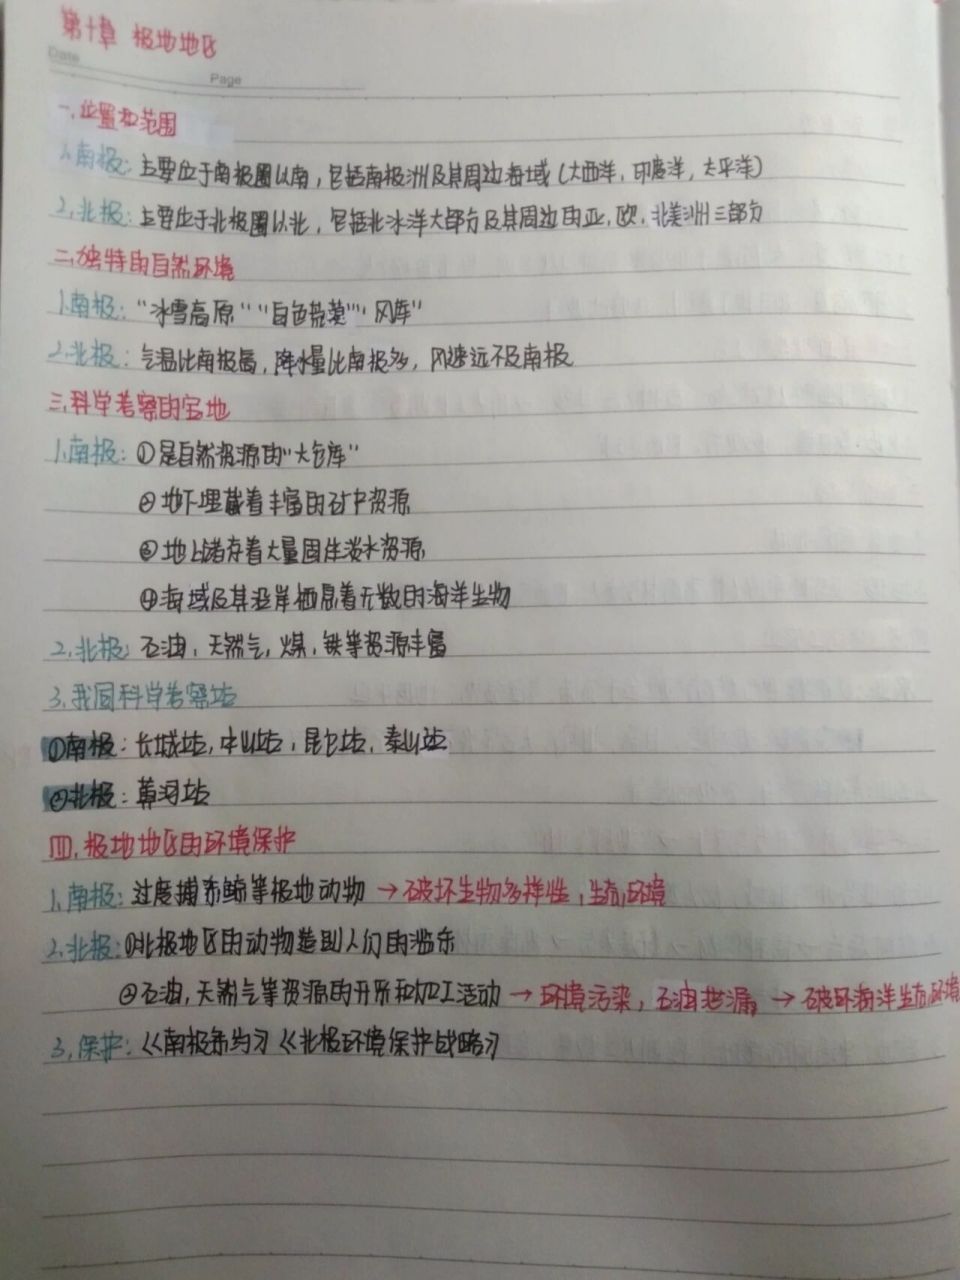 第十章 极地地区
Date
Page
一.位置和范围
1.南极：主要位于南极圈以南，包括南极洲及其周边海域（大西洋，印度洋，太平洋）
2.北极：主要位于北极圈以北，包括北冰洋大部分及其周边的亚，欧，北美洲三部分
二.独特的自然环境
1.南极：“冰雪高原”“白色荒漠”“风库”
2.北极：气温比南极高，降水量比南极多，风速远不及南极
三.科学考察的宝地
1.南极：①是自然资源的“大仓库”
②地下埋藏着丰富的矿产资源
③地上储存着大量固体淡水资源
④海域及其沿岸栖息着无数的海洋生物
2.北极：石油，天然气，煤，铁等资源丰富
3.我国科学考察站
①南极：长城站，中山站，昆仑站，泰山站
②北极：黄河站
四.极地地区的环境保护
1.南极：过度捕杀鲸等极地动物→破坏生物多样性，生态环境
2.北极：①北极地区的动物遭到人们的滥杀
②石油，天然气等资源的开采和加工活动→环境污染，石油泄漏→破坏海洋生态环境
3.保护：《南极条约》《北极环境保护战略》